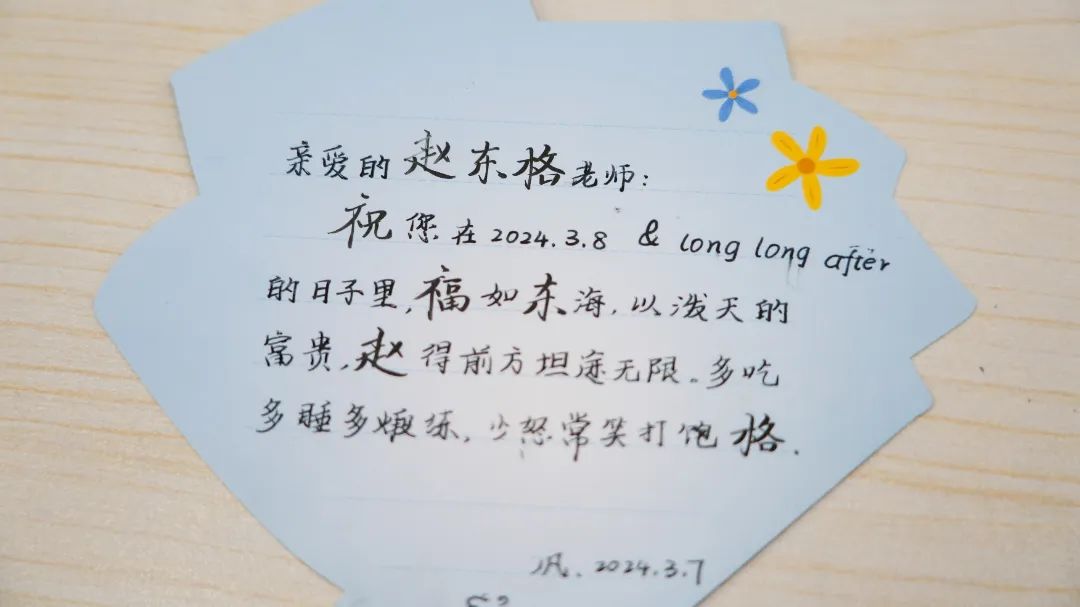 亲爱的赵东格老师：
祝您在2024.3.8 & long long after
的日子里,福如东海,以泼天的
富贵,赵得前方坦途无限。多吃
多睡多煅练,少怒常笑打饱格.
2024.3.7